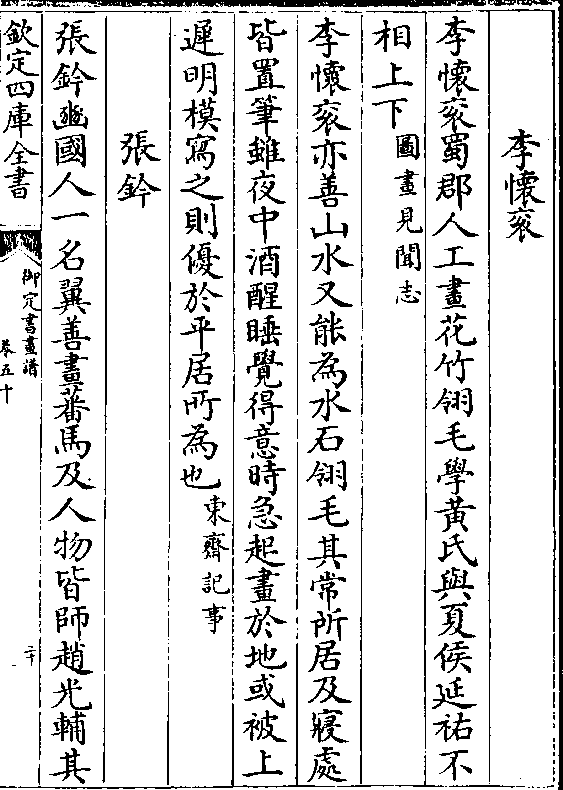 李懷衮
李懷衮蜀郡人工畫花竹翎毛學黃氏與夏侯延祐不
相上下圖畫見聞志
李懷衮亦善山水又能為水石翎毛其常所居及寢處
皆置筆雖夜中酒醒睡覺得意時急起畫於地或被上
遲明模寫之則優於平居所為也東齋記事
張鈐
張鈐豳國人一名翼善畫蕃馬及人物皆師趙光輔其
欽定四庫全書
御定書畫譜
卷五十
二十